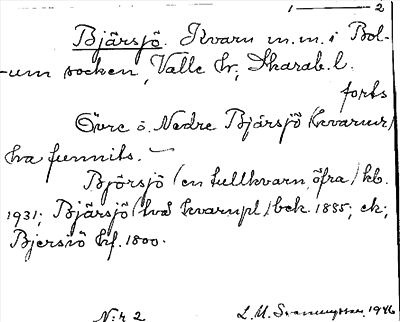 1 — 2
Bjärsjö. Kvarn m.m. i Bol-
-um socken, Valle hr; Skarab. l.
forts
Övre o. Nedre Bjärsjö (kvarnar)
ha funnits. —
Björsjö (en tullkvarn, öfra) kb.
1931; Bjärsjö (två kvarnpl) bek. 1885; ek;
Bjersiö hf. 1800.
N:r 2
1946